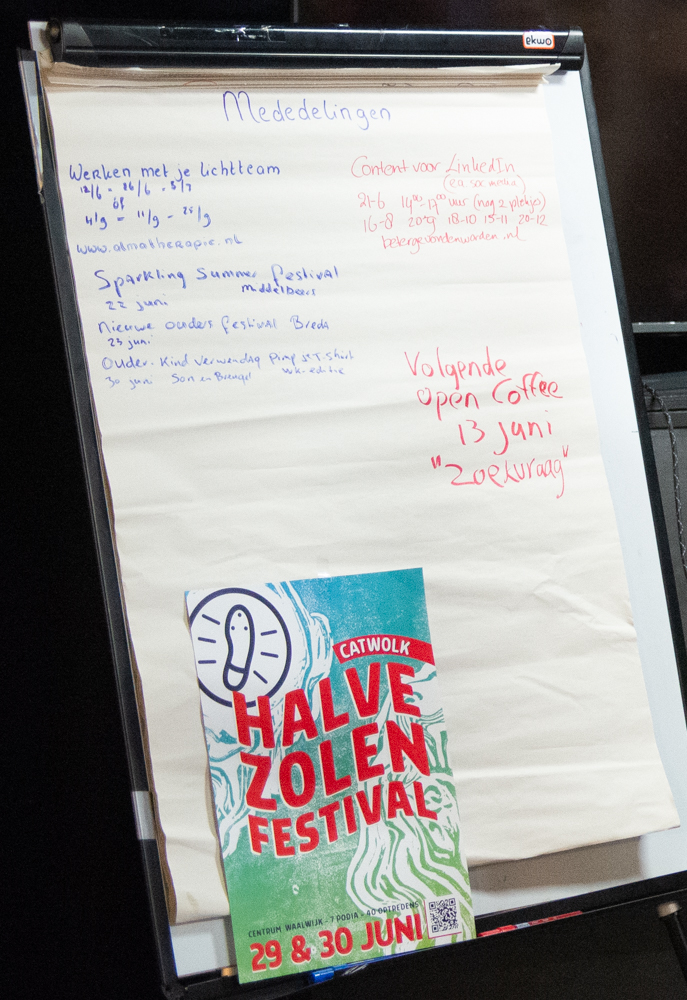 ekwo
Mededelingen
Werken met je lichtteam
12/6 - 26/6 - 3/7
of
4/9 - 11/9 - 25/9
www.almatherapie.nl
Sparkling Summer Festival
Middelbeers
22 juni
Nieuwe ouders festival Breda
23 juni
Ouder-Kind verwendag Pimp je T.shirt
30 juni Son en Breugel wk-editie
Content voor LinkedIn
(ea soc media)
21-6 14⁰⁰-17⁰⁰ uur (nog 2 plekjes)
16-8 20-9 18-10 15-11 20-12
betergevondenworden.nl
Volgende
open Coffee
13 juni
"Zoekvraag"
CATWOLK
HALVE
ZOLEN
FESTIVAL
CENTRUM WAALWIJK - 7 PODIA - 40 OPTREDENS
29 & 30 JUNI